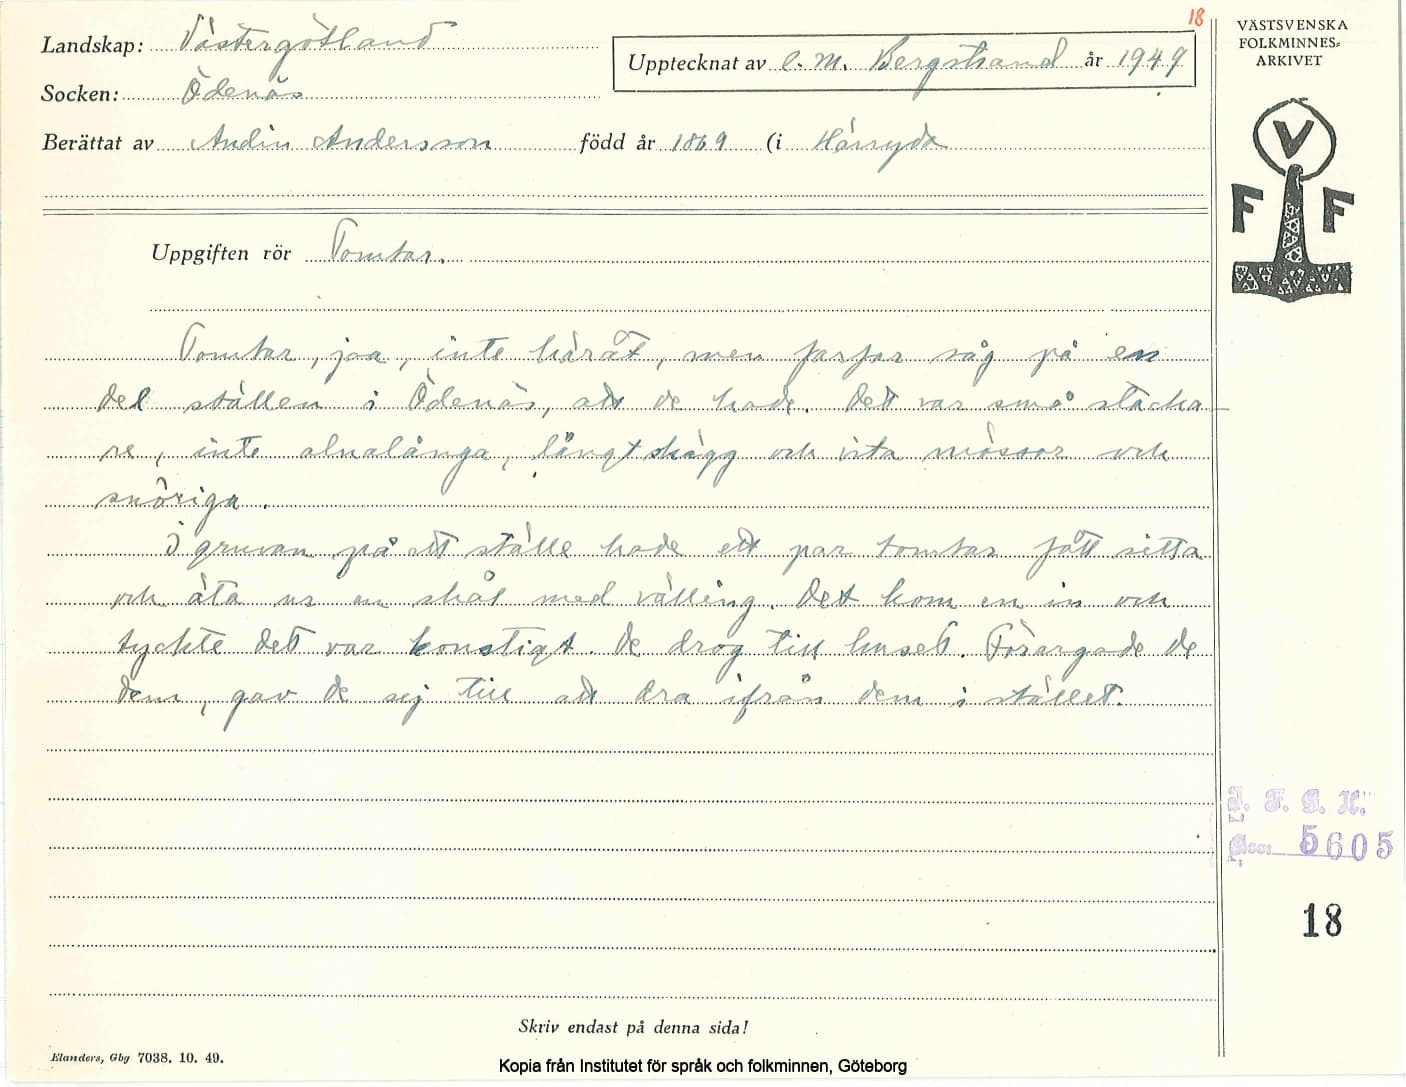 18
Landskap: Västergötland
Upptecknat av C. M. Bergstrand år 1949
VÄSTSVENSKA
FOLKMINNES=
ARKIVET
Socken: Ödenäs
Berättat av Andin Andersson född år 1869 (i Härryda
V
F F
Uppgiften rör Tomtar.
Tomtar, joa, inte häråt, men farfar såg på en
del ställen i Ödenäs, att de hade. Det var små stacka
re, inte alnalånga, långt skägg och vita mössor och
snöriga.
I gruvan på ett ställe hade ett par tomtar fått sitta
och äta ur en skål med välling. Det kom en in och
tyckte det var konstigt. De drog till huset. Förargade de
dem, gav de sej till att dra ifrån dem i stället.
I. F. G. H.
Acc: 5605
18
Skriv endast på denna sida!
Elanders, Gbg 7038. 10. 49.
Kopia från Institutet för språk och folkminnen, Göteborg